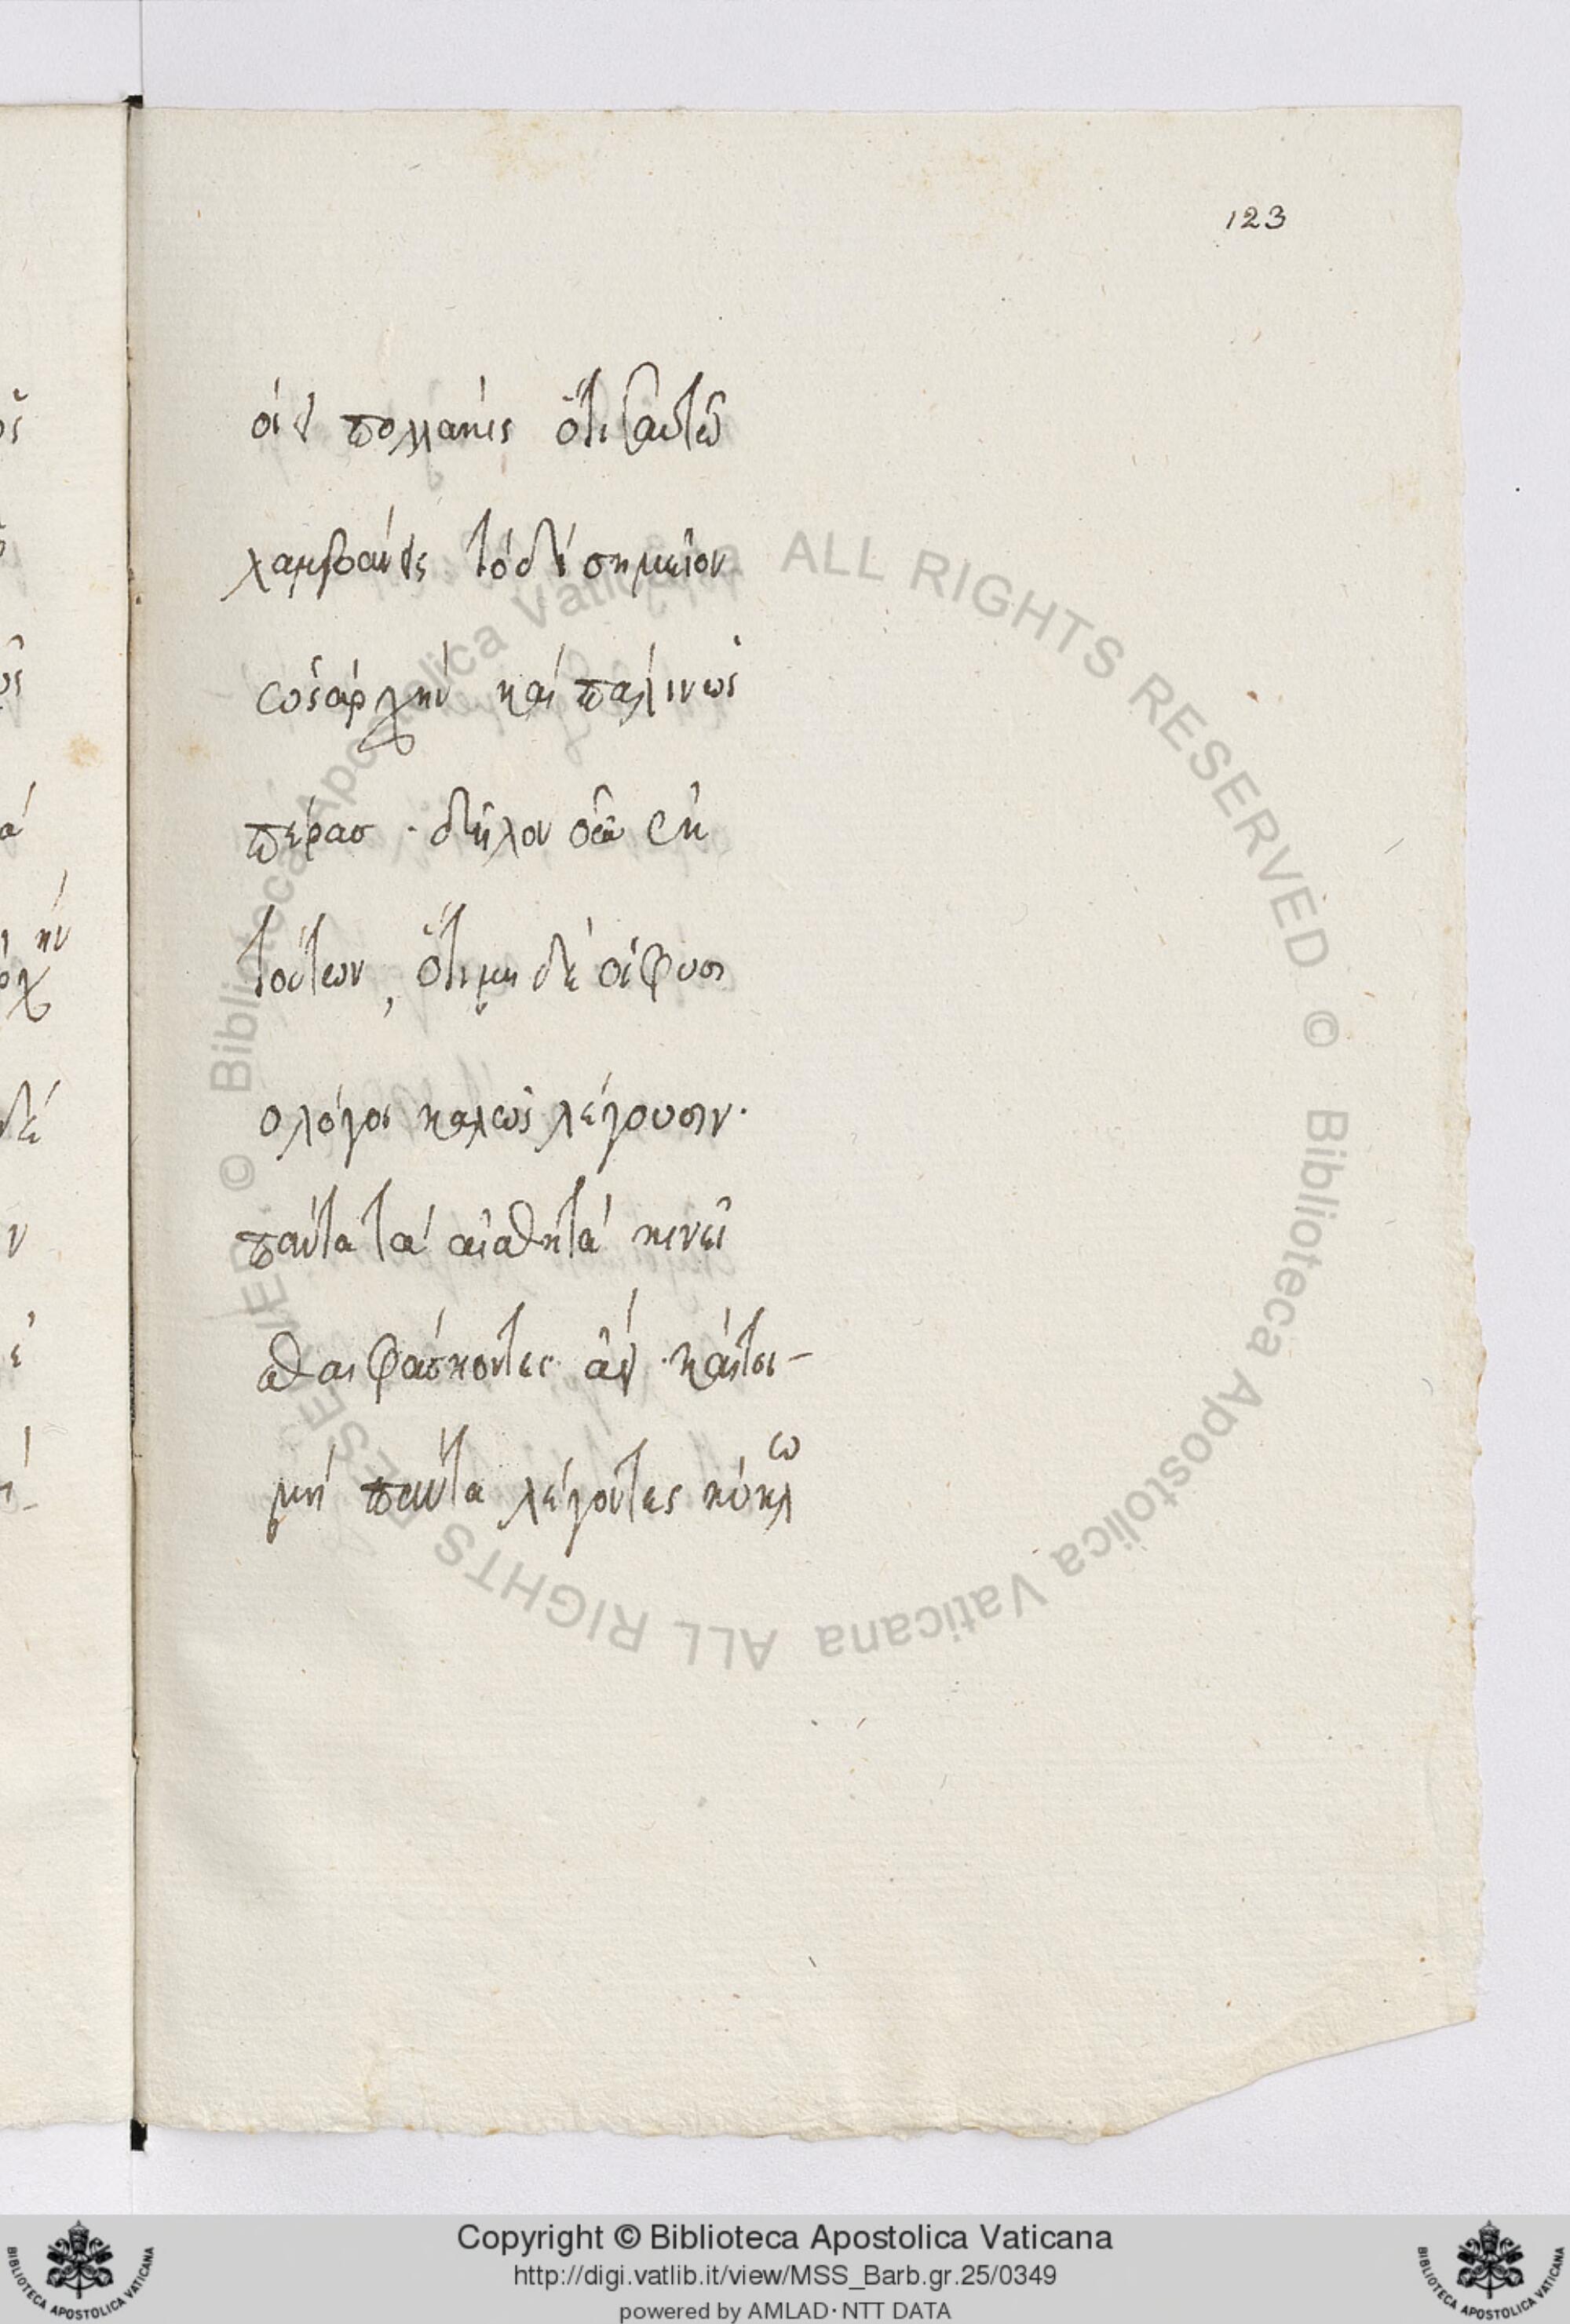 123
οἱ δὲ πολλάκις ὅτι ταυτῷ
λαμβάνεις τὸ δὲ σημεῖον
ὡς ἀρχὴν καὶ πάλιν ὡς
πέρας · δῆλον οὖν ἐκ
τούτων, ὅτι μηδὲ οἱ φυσι
ολόγοι καλῶς λέγουσιν·
πάντα τὰ αἰσθητὰ κινεῖ
σθαι φάσκοντες ἀεὶ · καίτοι
μὴ πάντα λέγοντες κύκλω
Biblioteca Apostolica Vaticana ALL RIGHTS RESERVED © Biblioteca Apostolica Vaticana ALL RIGHTS RESERVED ©
BIBLIOTECA APOSTOLICA VATICANA
Copyright © Biblioteca Apostolica Vaticana
http://digi.vatlib.it/view/MSS_Barb.gr.25/0349
powered by AMLAD · NTT DATA
BIBLIOTECA APOSTOLICA VATICANA